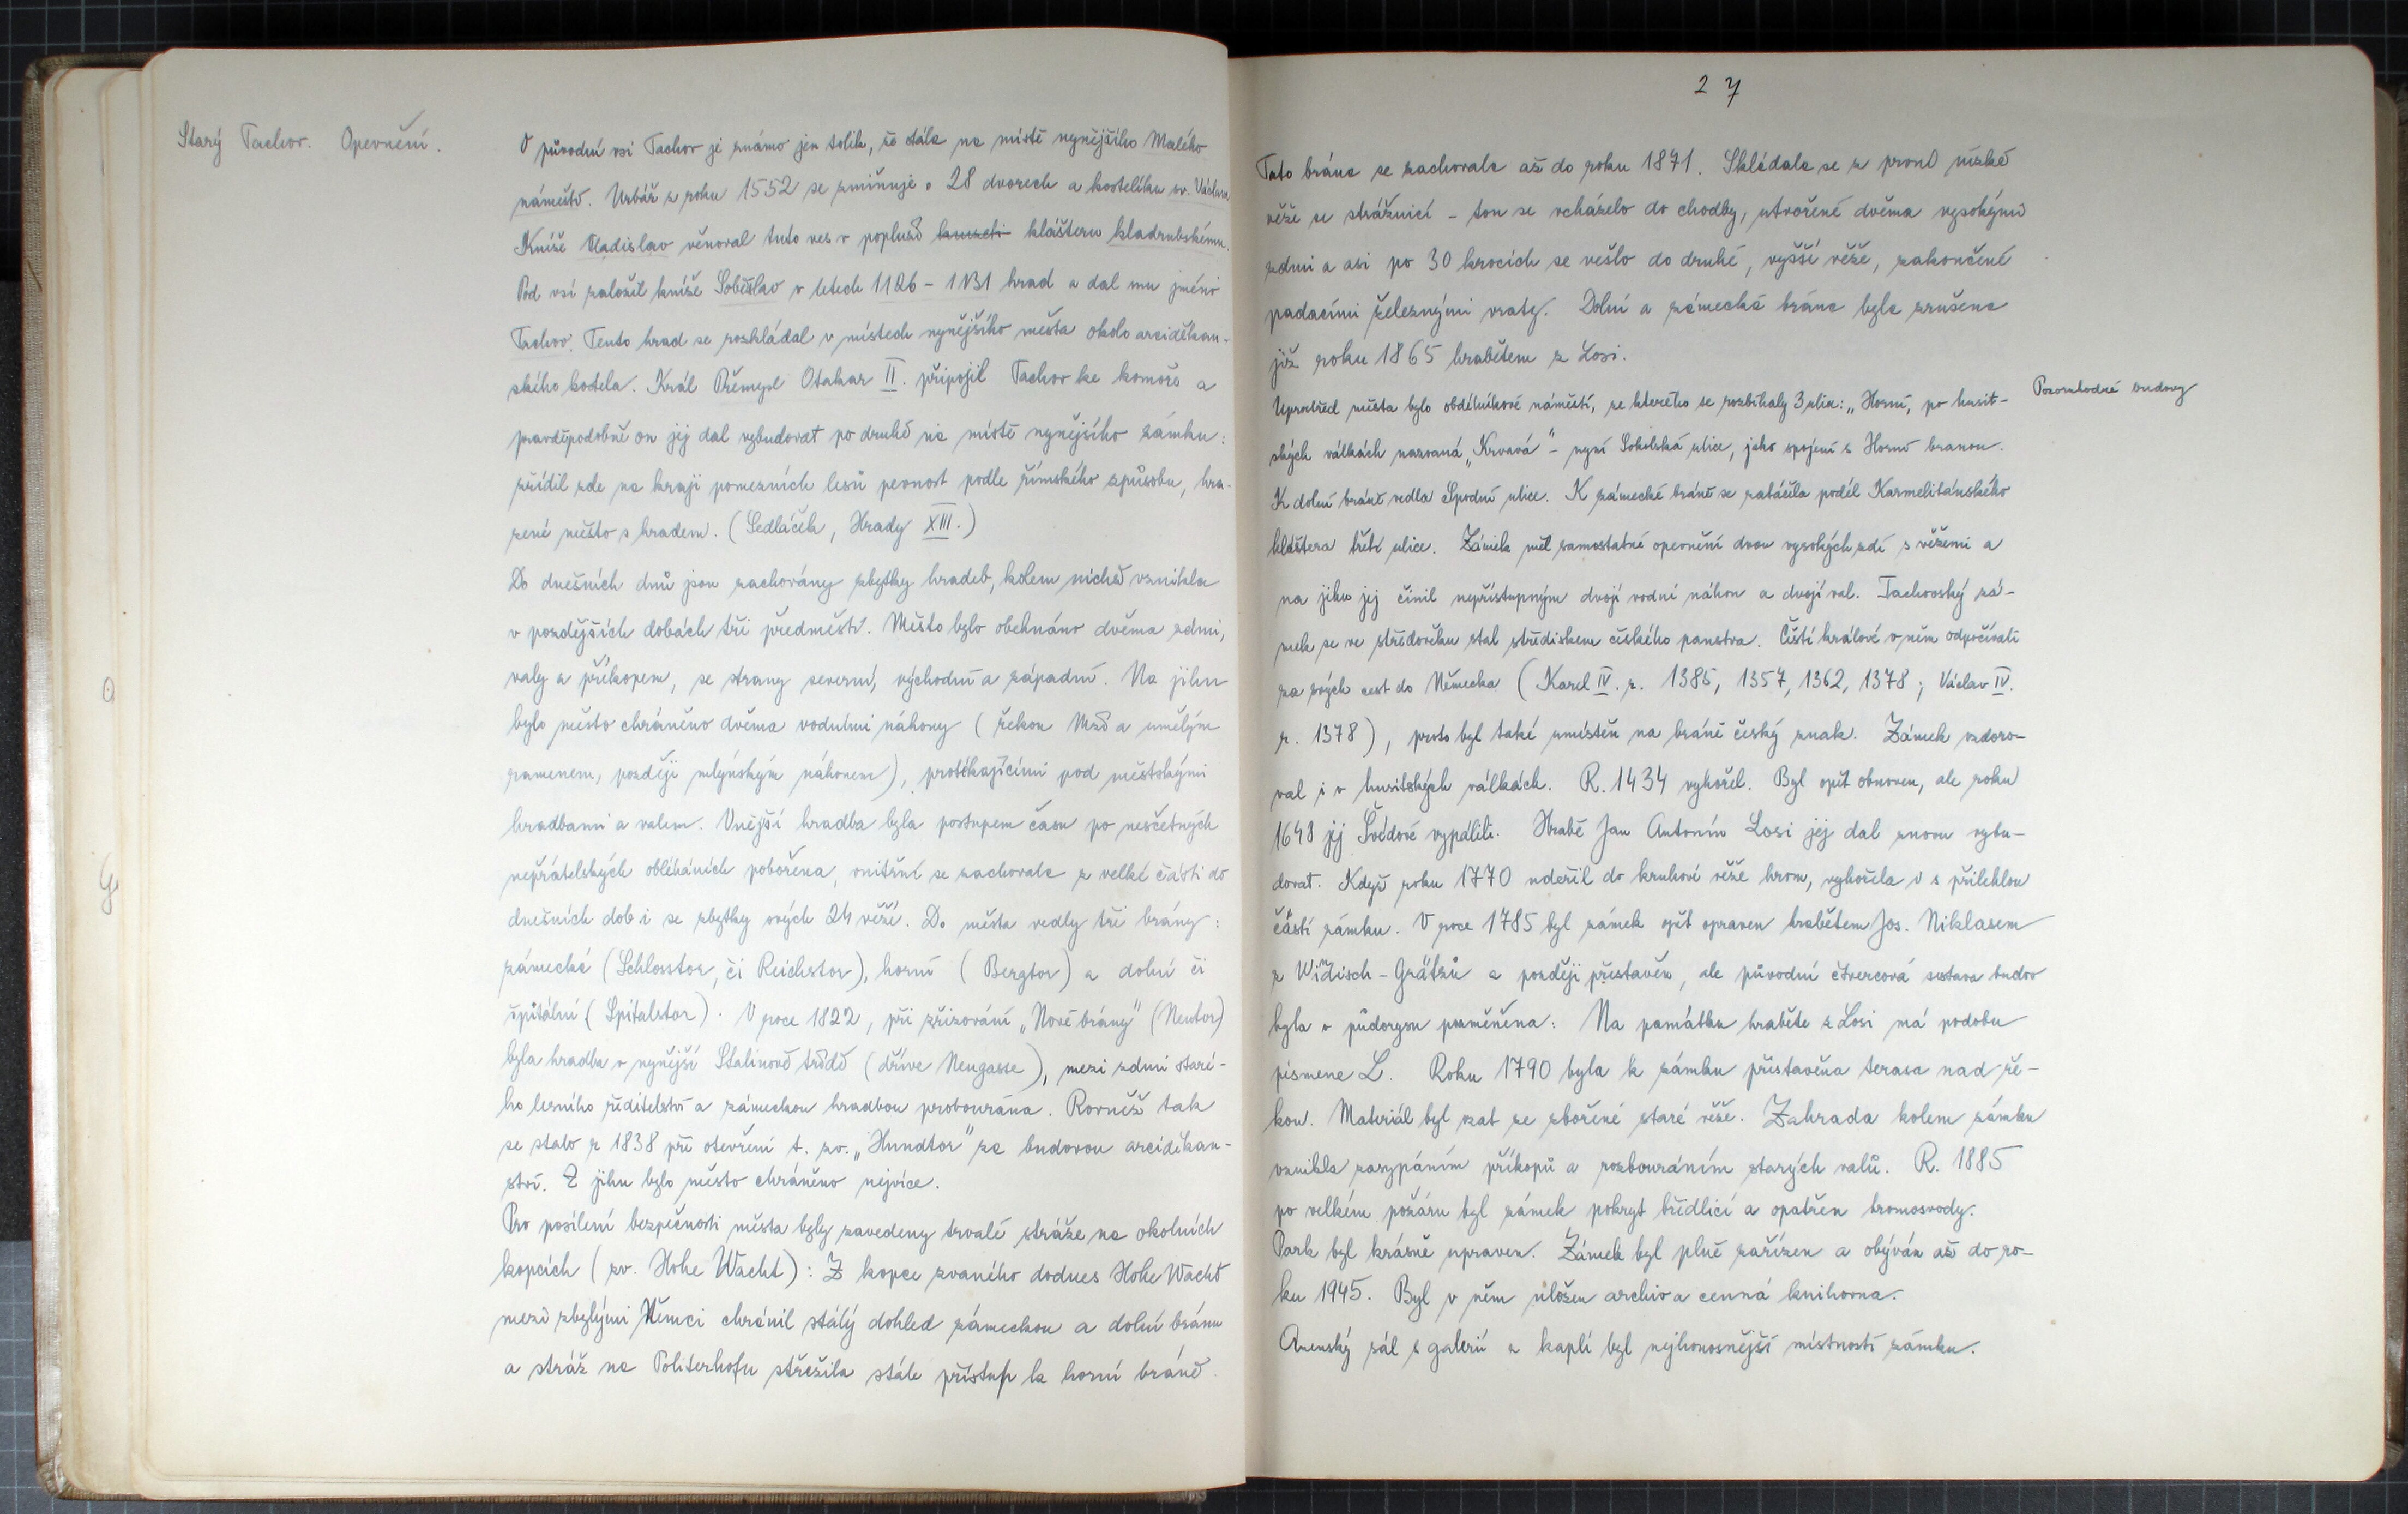 Starý Tachov. Opevnění.
O původní vsi Tachov je známo jen tolik, že stála na místě nynějšího Malého
náměstí. Urbář z roku 1552 se zmiňuje o 28 dvorech a kostelíku sv. Václava.
Kníže Vladislav věnoval tuto ves v popluží klášteru kladrubskému.
Pod vsí založil kníže Soběslav v letech 1126 - 1131 hrad a dal mu jméno
Tachov. Tento hrad se rozkládal v místech nynějšího města okolo arciděkan-
ského kostela. Král Přemysl Otakar II. připojil Tachov ke komoře a
pravděpodobně on jej dal vybudovat po druhé na místě nynějšího zámku:
zřídil zde na kraji pomezních lesů pevnost podle římského způsobu, hra-
zené město s hradem. (Sedláček, Hrady XIII.)
Do dnešních dnů jsou zachovány zbytky hradeb, kolem nichž vznikla
v pozdějších dobách tři předměstí. Město bylo obehnáno dvěma zdmi,
valy a příkopem, se strany severní, východní a západní. Na jihu
bylo město chráněno dvěma vodními náhony (řekou Mží a umělým
ramenem, později mlýnským náhonem), protékajícími pod městskými
hradbami a valem. Vnější hradba byla postupem času po nesčetných
nepřátelských obléháních pobořena, vnitřní se zachovala z velké části do
dnešních dob i se zbytky svých 24 věží. Do města vedly tři brány:
zámecká (Schlosstor, či Reichstor), horní (Bergtor) a dolní či
špitální (Spitalstor). V roce 1822, při zřizování „Nové brány" (Neutor)
byla hradba v nynější Stalinově třídě (dříve Neugasse), mezi zdmi staré-
ho lesního ředitelství a zámeckou hradbou probourána. Rovněž tak
se stalo r 1838 při otevření t. zv. „Hundtor" za budovou arciděkan-
ství. Z jihu bylo město chráněno nejvíce.
Pro posílení bezpečnosti města byly zavedeny trvalé stráže na okolních
kopcích (zv. Hohe Wacht): Z kopce zvaného dodnes Hohe Wacht
mezi zbylými Němci chránil stálý dohled zámeckou a dolní bránu
a stráž na Politerhofu střežila stále přístup k horní bráně.
27
Tato brána se zachovala až do roku 1871. Skládala se z první nízké
věže se strážnicí - tou se vcházelo do chodby, utvořené dvěma vysokými
zdmi a asi po 30 krocích se vešlo do druhé, vyšší věže, zakončené
padacími železnými vraty. Dolní a zámecká brána byla zrušena
již roku 1865 hrabětem z Losi.
Pozoruhodné budovy
Uprostřed města bylo obdélníkové náměstí, ze kterého se rozbíhaly 3 ulice: „Horní, po husit-
ských válkách nazvaná „Krvavá" - nyní Sokolská ulice, jako spojení s Horní branou.
K dolní bráně vedla Spodní ulice. K zámecké bráně se zatáčela podél Karmelitánského
kláštera třetí ulice. Zámek měl samostatné opevnění dvou vysokých zdí s věžemi a
na jihu jej činil nepřístupným dvojí vodní náhon a dvojí val. Tachovský zá-
mek se ve středověku stal střediskem českého panstva. Čeští králové v něm odpočívali
za svých cest do Německa (Karel IV. r. 1385, 1357, 1362, 1378; Václav IV.
r. 1378), proto byl také umístěn na bráně český znak. Zámek vzdoro-
val i v husitských válkách. R. 1434 vyhořel. Byl opět obnoven, ale roku
1648 jej Švédové vypálili. Hrabě Jan Antonín Losi jej dal znovu vybu-
dovat. Když roku 1770 udeřil do kruhové věže hrom, vyhořela i s přilehlou
částí zámku. V roce 1785 byl zámek opět opraven hrabětem Jos. Niklasem
z Windisch - Grätzů a později přestavěn, ale původní čtvercová sestava budov
byla v půdorysu pozměněna: Na památku hraběte z Losi má podobu
písmene L. Roku 1790 byla k zámku přistavěna terasa nad ře-
kou. Materiál byl vzat ze zbořené staré věže. Zahrada kolem zámku
vznikla zasypáním příkopů a rozbouráním starých valů. R. 1885
po velkém požáru byl zámek pokryt břidlicí a opatřen hromosvody.
Park byl krásně upraven. Zámek byl plně zařízen a obýván až do ro-
ku 1945. Byl v něm uložen archiv a cenná knihovna.
Anenský sál s galerií a kaplí byl nejhonosnější místností zámku.